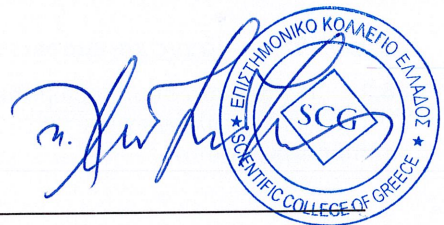 ΕΠΙΣΤΗΜΟΝΙΚΟ ΚΟΛΛΕΓΙΟ ΕΛΛΑΔΟΣ
SCG
★ SCIENTIFIC COLLEGE OF GREECE ★